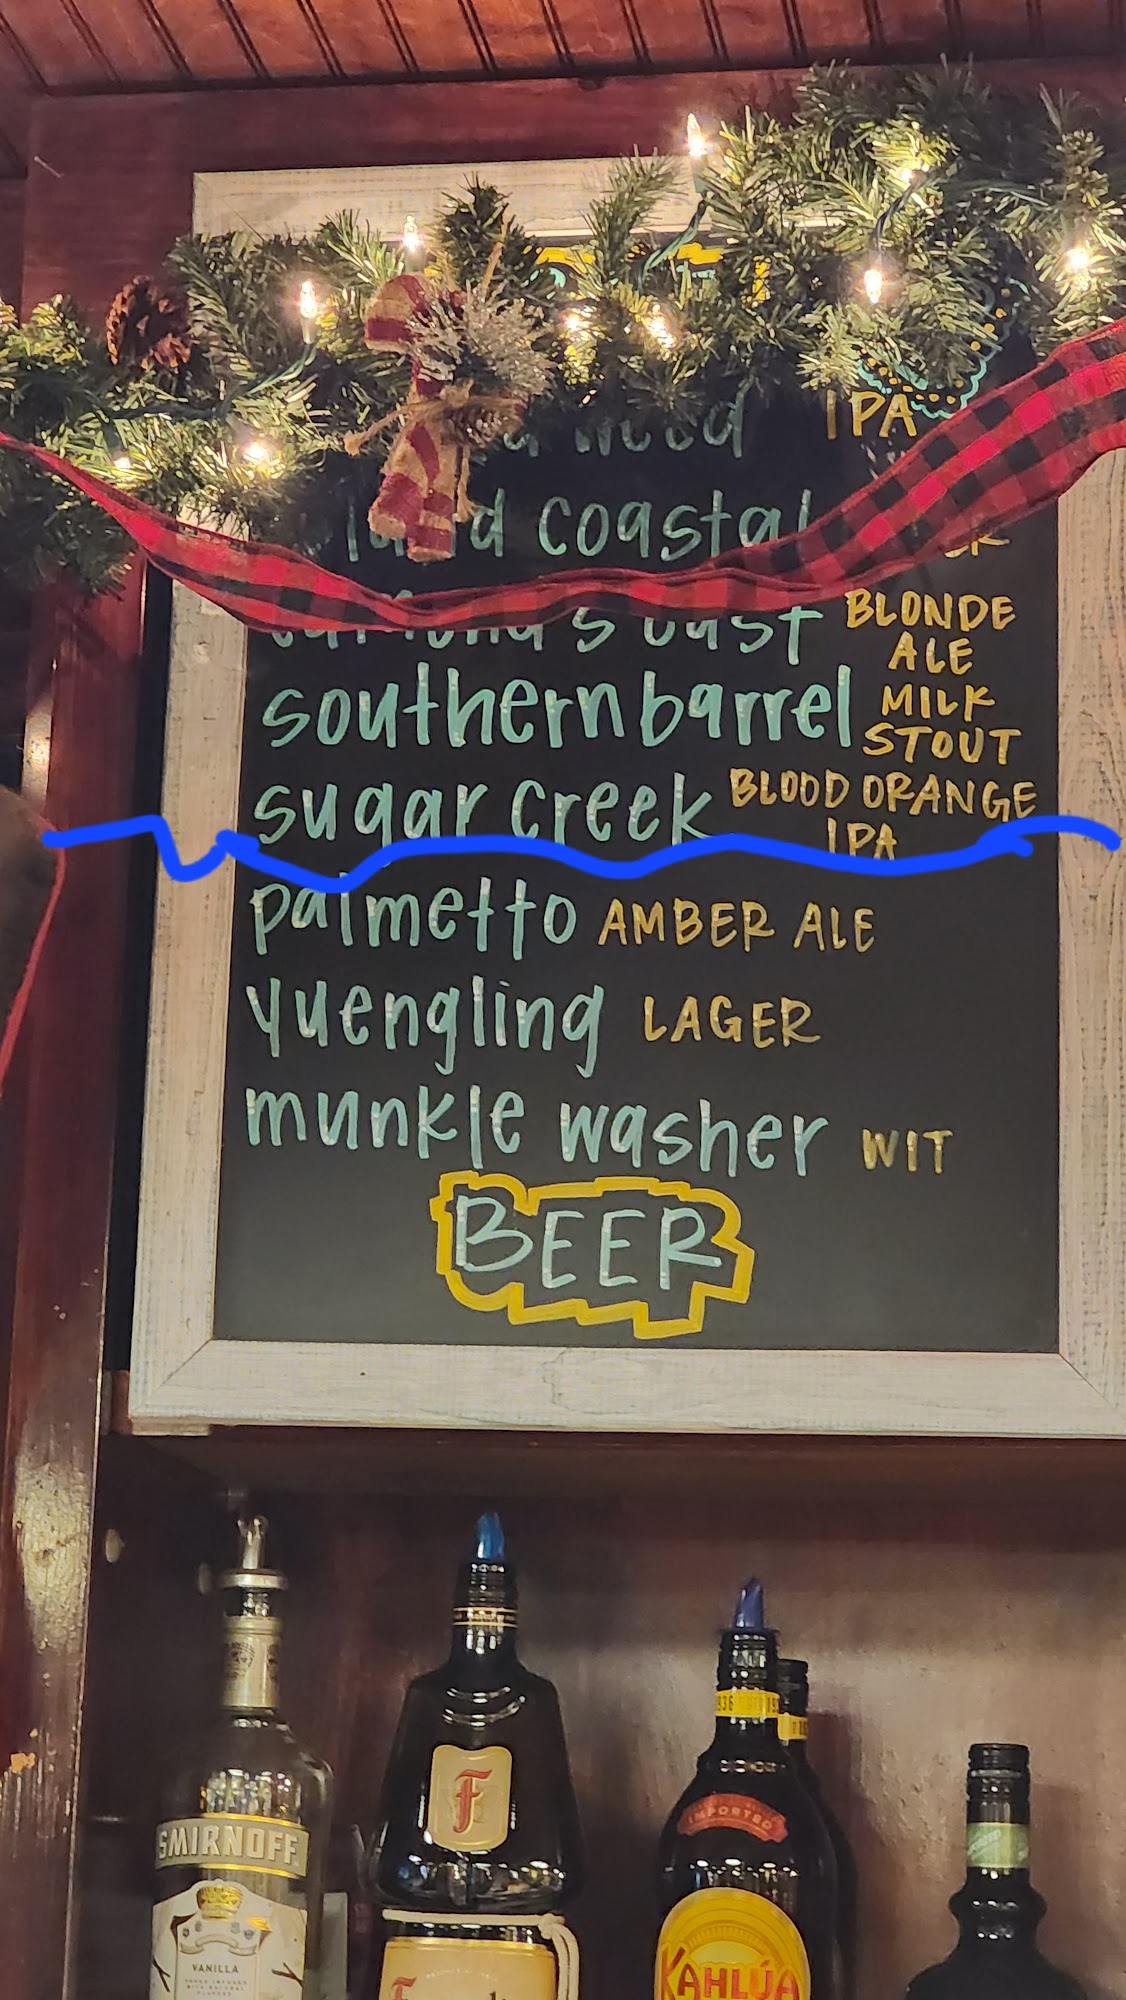 IPA
coastal
BLONDE
ALE
southern barrel MILK
STOUT
sugar creek BLOOD ORANGE
IPA
palmetto AMBER ALE
yuengling LAGER
munkle washer WIT
BEER
SMIRNOFF
VANILLA
F
IMPORTED
KAHLÚA